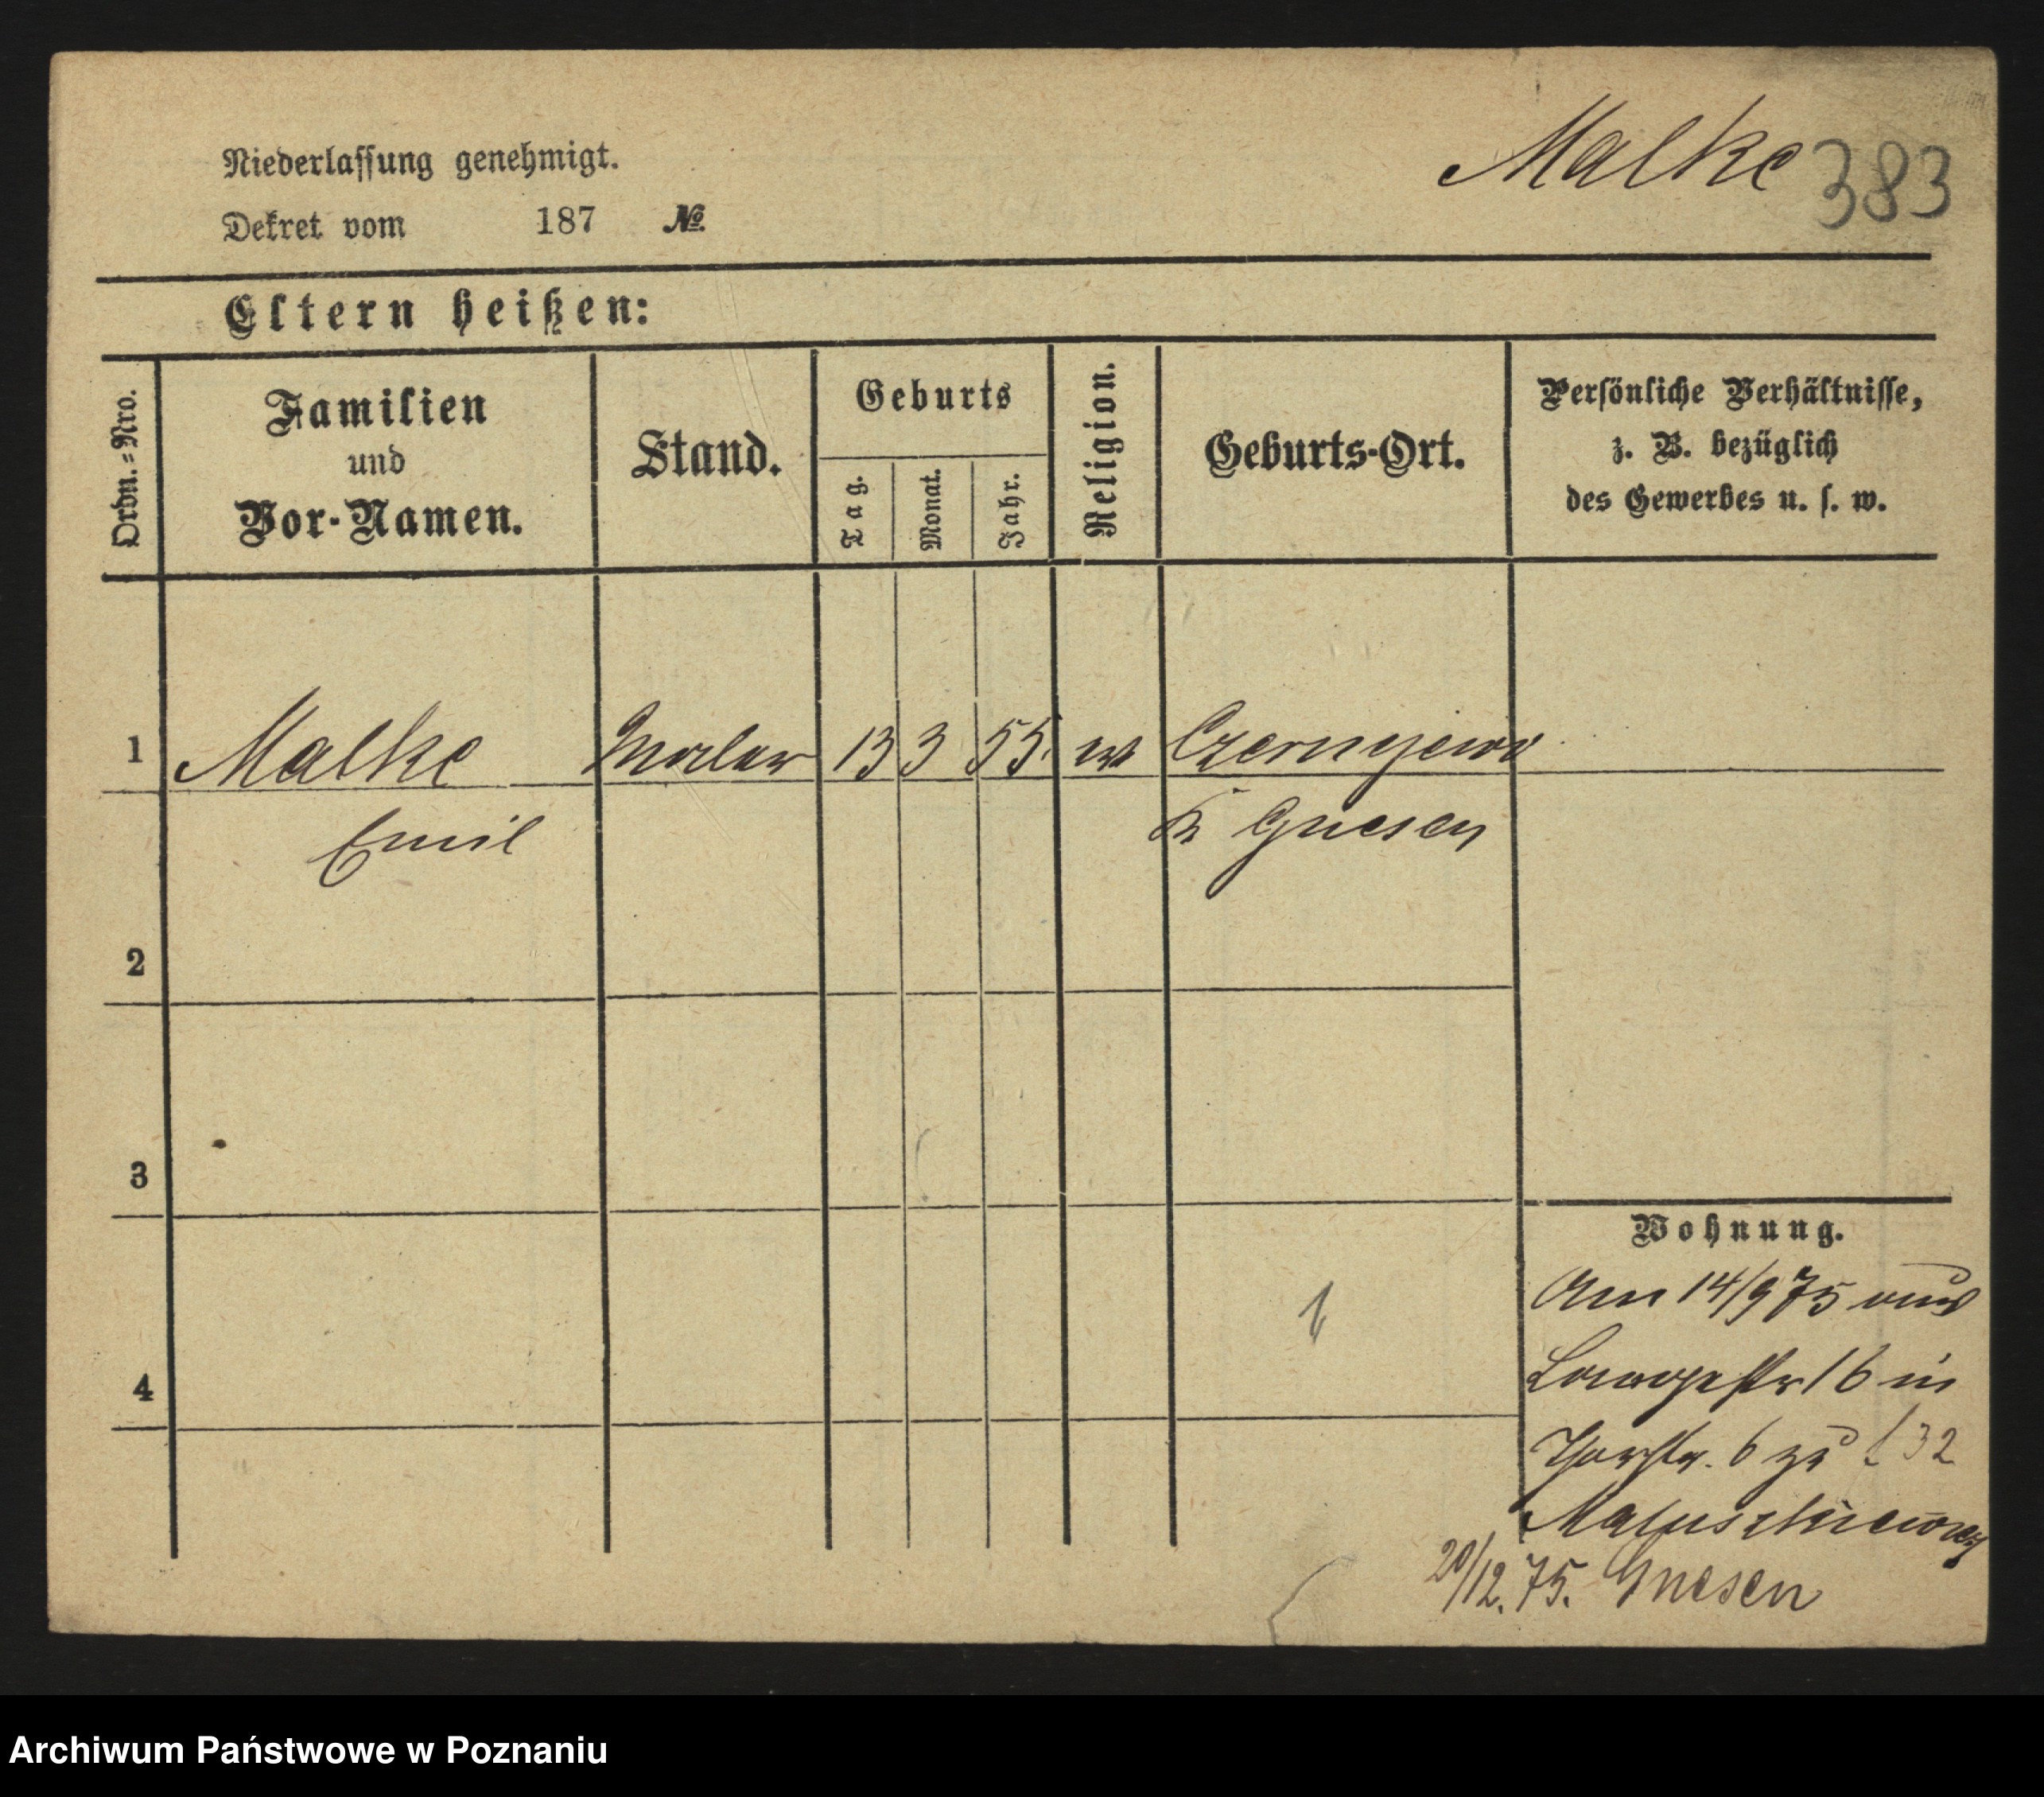 Malke 383
Niederlassung genehmigt.
Dekret vom 187 №
Eltern heißen:
Ordn.=Nro.
Familien
und
Vor-Namen.
Stand.
Geburts
Tag.
Monat.
Jahr.
Religion.
Geburts-Ort.
Persönliche Verhältnisse,
z. B. bezüglich
des Gewerbes u. s. w.
1 Malke 13 3 55. Czerniejewo
Emil Gnesen
2
3
4
Wohnung.
Am 14/9 75 aus
16 in
6 zu 32
20/12. 75. Gnesen
Archiwum Państwowe w Poznaniu